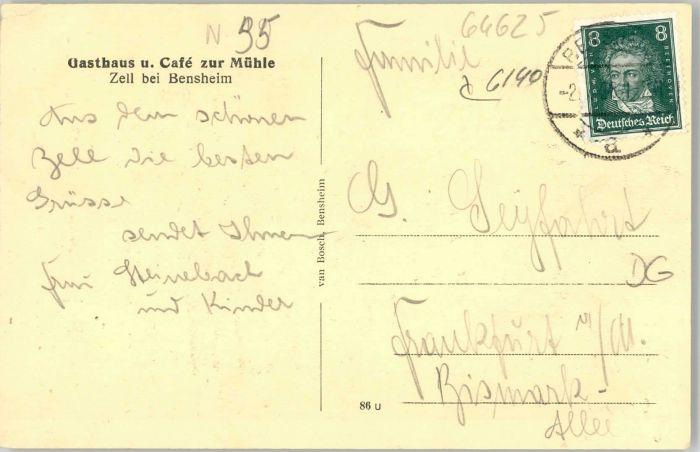 N 35
64625
Gasthaus u. Café zur Mühle
Zell bei Bensheim
Aus dem schönen
Zell die besten
Grüsse
sendet Ihnen
Frau Steinebach
und Kinder
van Bosch, Bensheim
86 U
Familie
6140
G. Seyfahrt
DG
Frankfurt a/M.
Bismark-
Allee
8 8
LUDW. V. BEETHOVEN
Deutsches Reich
BE
-2
* a *